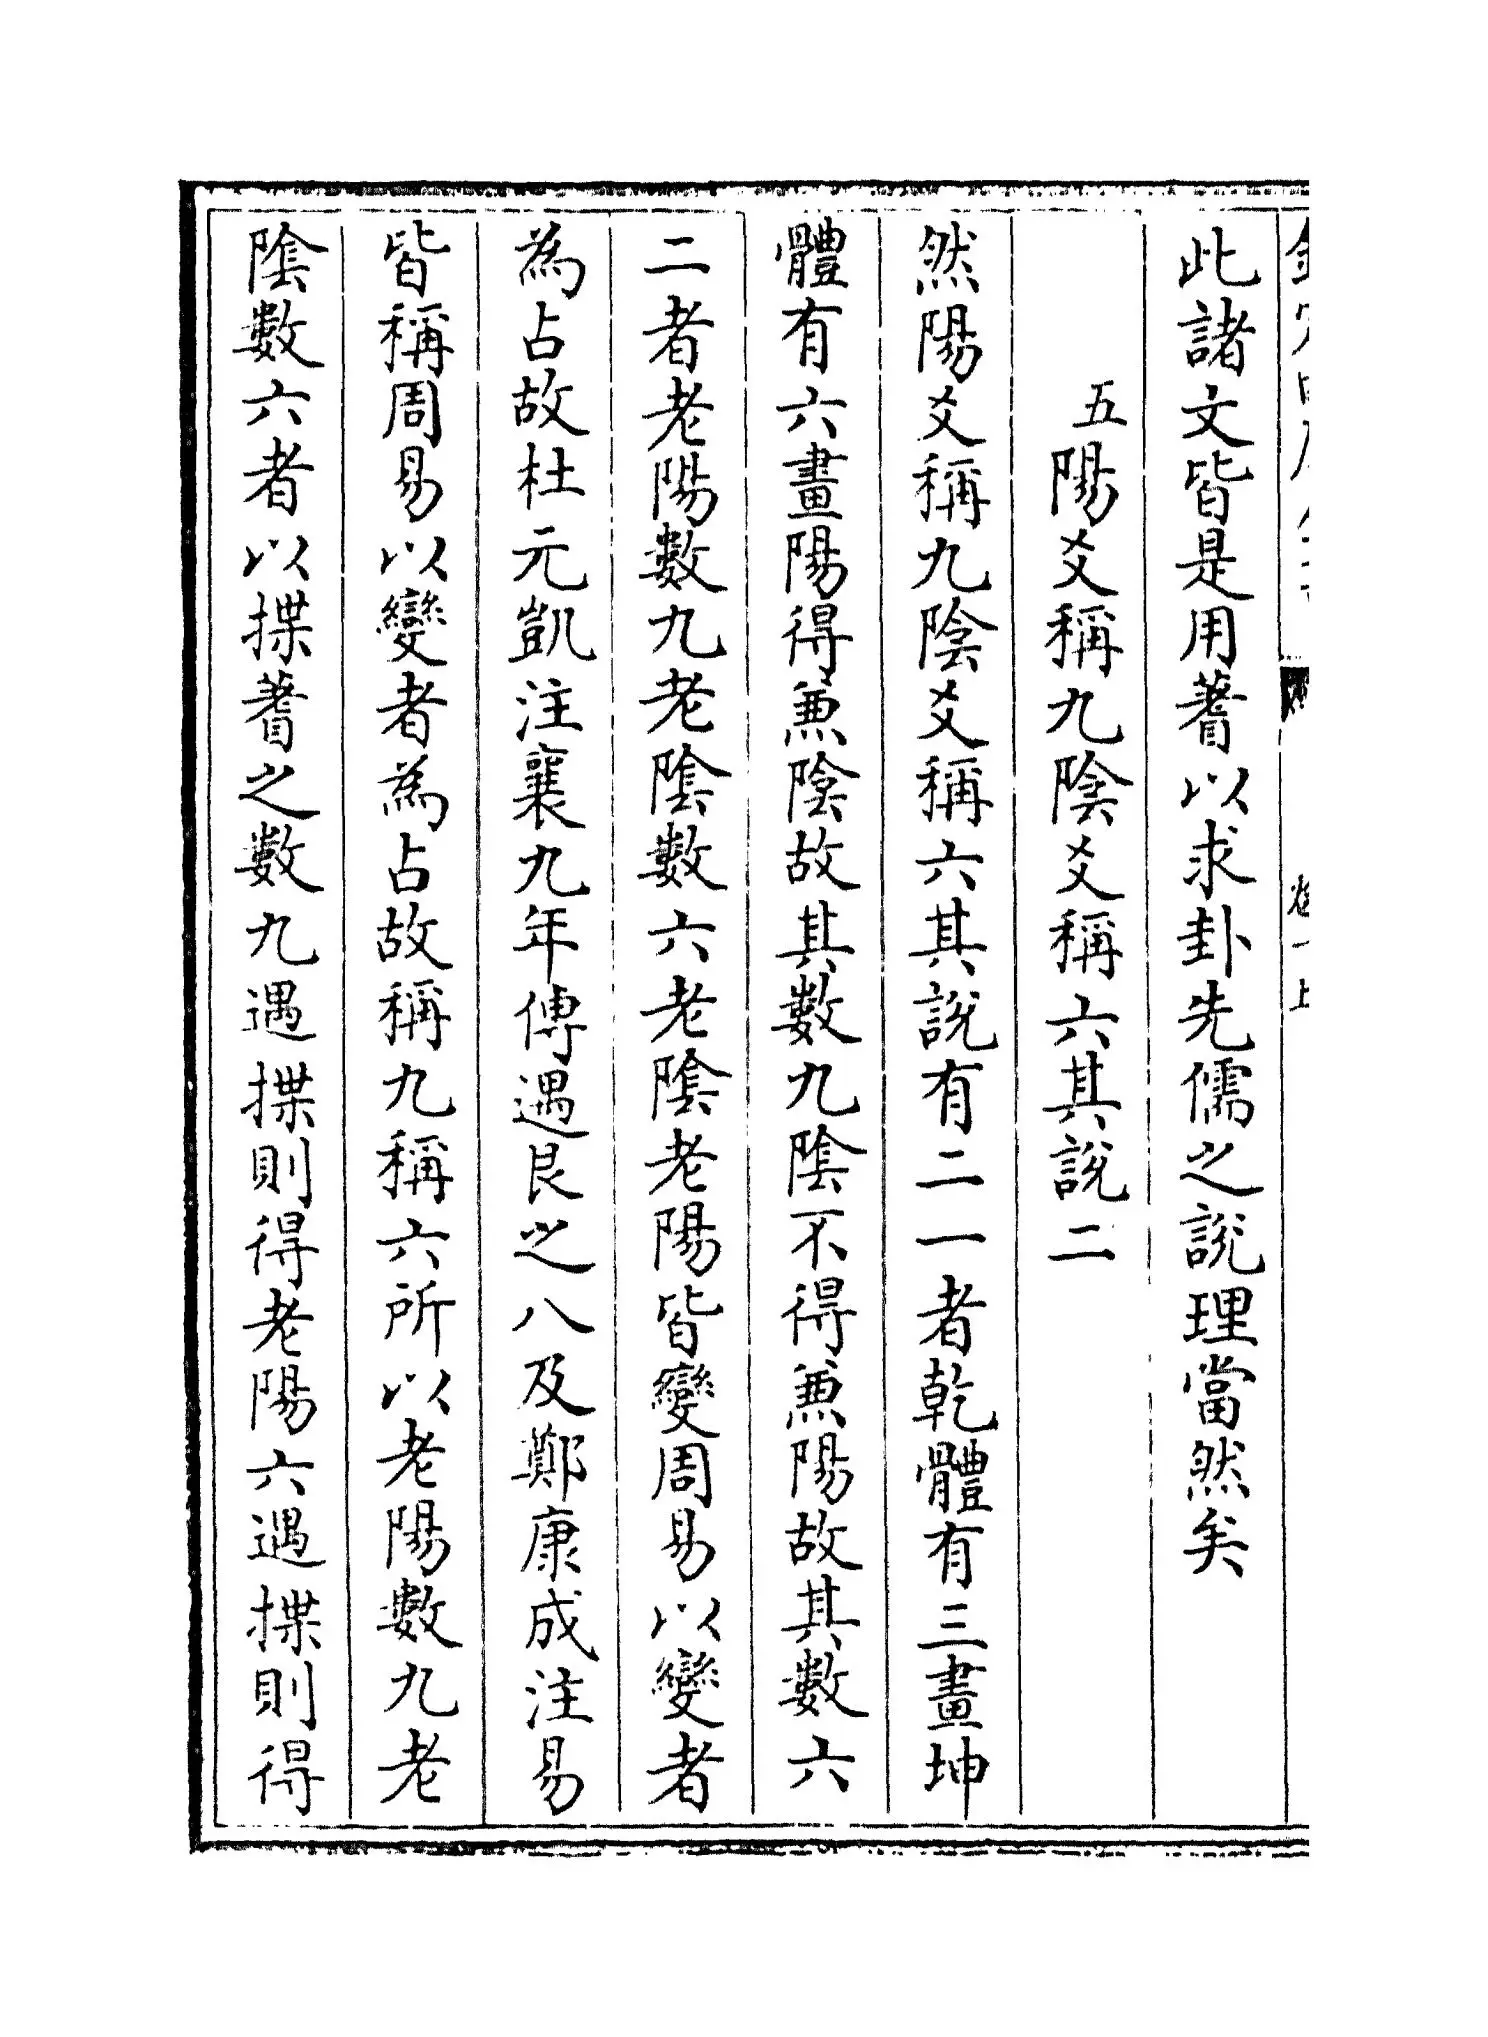 此諸文皆是用蓍以求卦先儒之說理當然矣
五陽爻稱九陰爻稱六其說二
然陽爻稱九陰爻稱六其說有二一者乾體有三畫坤
體有六畫陽得兼陰故其數九陰不得兼陽故其數六
二者老陽數九老陰數六老陰老陽皆變周易以變者
為占故杜元凱注襄九年傳遇艮之八及鄭康成注易
皆稱周易以變者為占故稱九稱六所以老陽數九老
陰數六者以揲蓍之數九遇揲則得老陽六遇揲則得